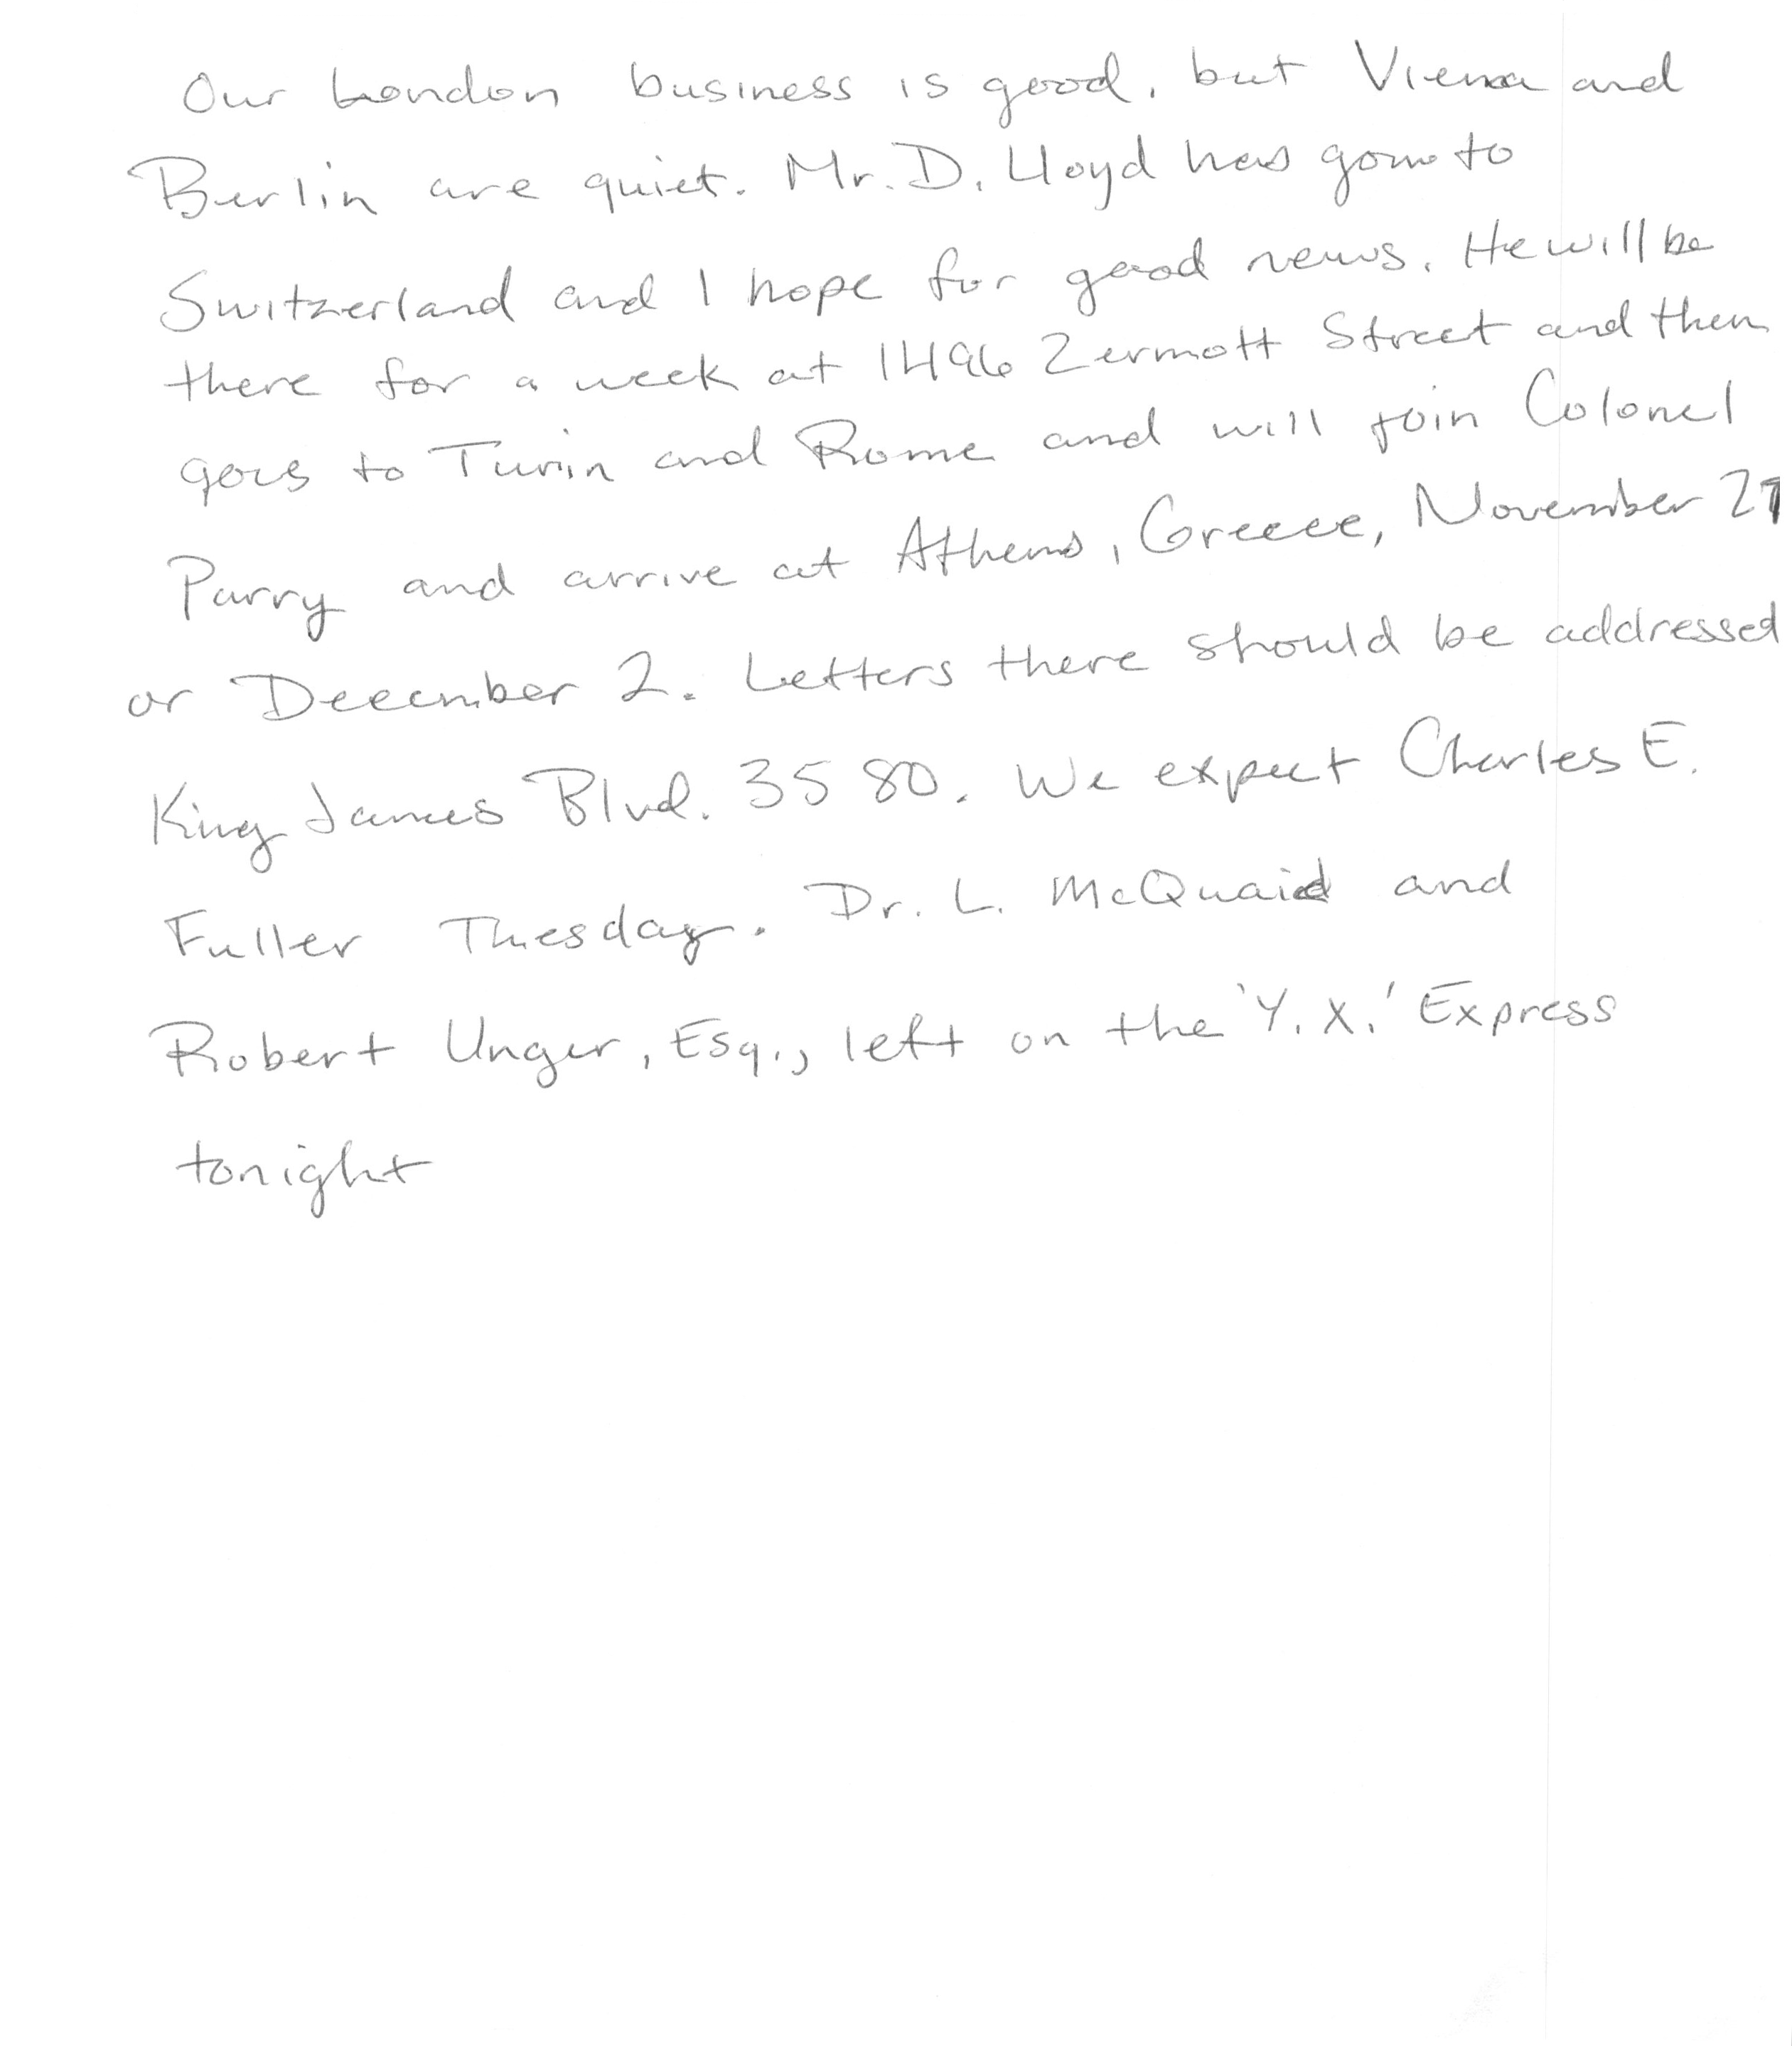 Our London business is good, but Vienna and
Berlin are quiet. Mr. D. Lloyd has gone to
Switzerland and I hope for good news. He will be
there for a week at 1496 Zermott Street and then
goes to Turin and Rome and will join Colonel
Parry and arrive at Athens, Greece, November 27
or December 2. Letters there should be addressed
King James Blvd. 3580. We expect Charles E.
Fuller Tuesday. Dr. L. McQuaid and
Robert Unger, Esq., left on the 'Y.X.' Express
tonight